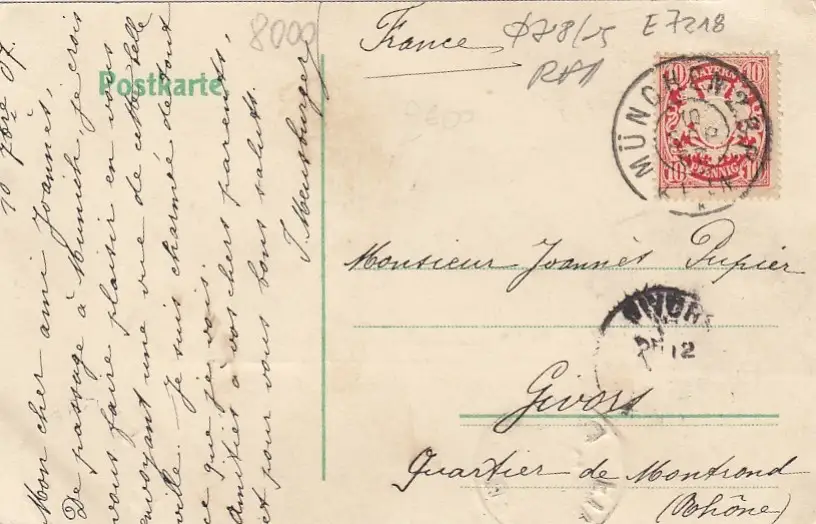 10 7bre 07.
Mon cher ami Joannès,
De passage à Munich, je crois
vous faire plaisir en vous
envoyant une vue de cette belle
ville. Je suis charmé de tout
ce que je vois.
Amitiés à vos chers parents,
et pour vous bons saluts.
J. Meusburger
Postkarte
8000
France
E 7218
BAYERN
10 10
10 PFENNIG 10
MÜNCHEN
Monsieur Joannès Pupier
GIVORS
12
Givors
Quartier de Montrond
(Rhône)